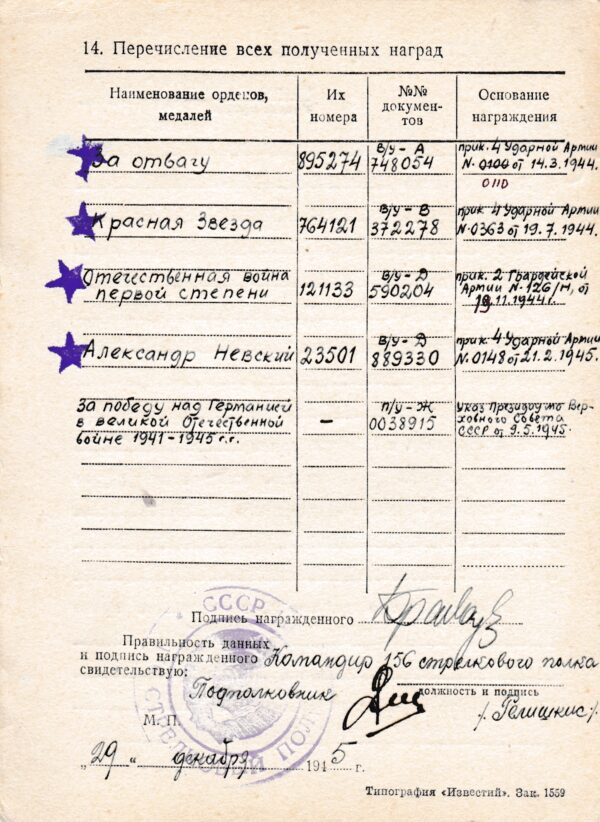 14. Перечисление всех полученных наград
Наименование орденов, медалей
Их номера
№№ документов
Основание награждения
За отвагу 895274 В/у - А 748054 прик. 4 Ударной Армии N. 0100 от 14.3.1944.
0110
Красная Звезда 764121 В/у - В 372278 прик 4 Ударной Армии N. 0363 от 19.7.1944.
Отечественная война первой степени 121133 В/у - Д 590204 прик. 2 Гвардейской Армии N. 126/Н, от 19.11.1944г.
Александр Невский 23501 В/у - Д 889330 прик. 4 Ударной Армии N. 0148 от 21.2.1945.
За победу над Германией в великой Отечественной войне 1941-1945 г.г. - п/у - Ж 0038915 указ Президиума Верховного Совета СССР от 9.5.1945.
Подпись награжденного
Правильность данных
и подпись награжденного Командир 156 стрелкового полка
свидетельствую:
Подполковник должность и подпись
М. П. /. Гелишкис /.
„29" декабря 1945 г.
СССР
СТРЕЛКОВЫЙ ПОЛ
Типография «Известий». Зак. 1559